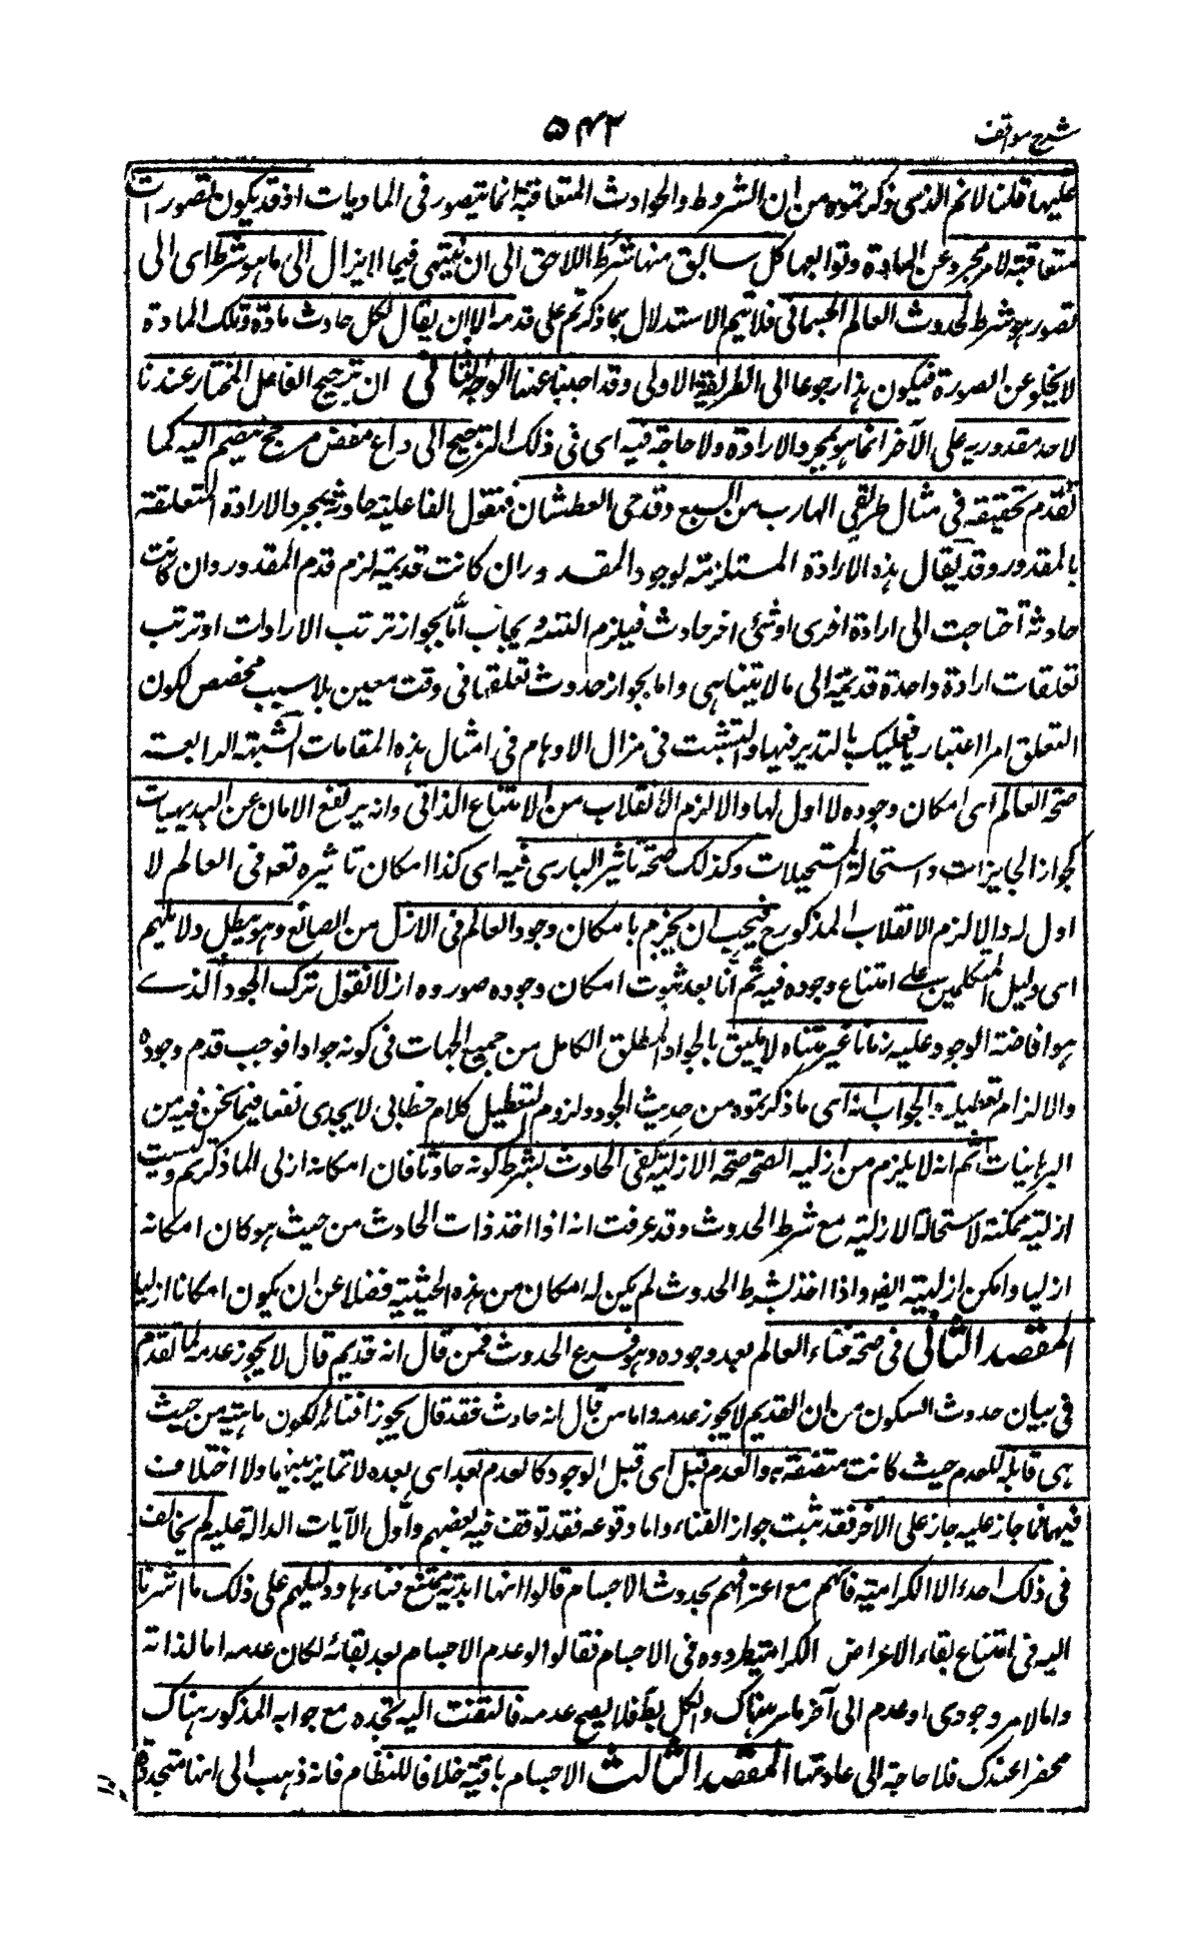 شرح مواقف
۵۴۲
عليها قلنا لا نم الذى ذكرتموه من ان الشروط والحوادث المتعاقبة انما يتصور فى الماديات اذ قد يكون تصورات
متعاقبة لامر مجرد عن المادة وتوابعها كل سابق منها شرط للاحق الى ان ينتهى فيما لا يزال الى ما هو شرط اى الى
تصور هو شرط لحدوث العالم الجسمانى فلا يتم الاستدلال بما ذكرتم على قدمه الا ان يقال لكل حادث مادة وتلك المادة
لا يخلو عن الصورة فيكون هذا رجوعا الى الطريقة الاولى وقد اجبنا عنها الوجه الثانى ان ترجيح الفاعل المختار عندنا
لاحد مقدوريه على الآخر انما هو بمجرد الارادة ولا حاجة فيه اى فى ذلك الترجيح الى داع مفض مرجح ينضم اليه كما
تقدم تحقيقه فى مثال طريقى الهارب من السبع وقدحى العطشان فنقول الفاعلية حادثة بمجرد الارادة المتعلقة
بالمقدور وقد يقال هذه الارادة المستلزمة لوجود المقدور ان كانت قديمة لزم قدم المقدور وان كانت
حادثة احتاجت الى ارادة اخرى او شئ اخر حادث فيلزم التسلسل يجاب اما بجواز ترتب الارادات او ترتب
تعلقات ارادة واحدة قديمة الى ما لا يتناهى واما بجواز حدوث تعلقها فى وقت معين بلا سبب مخصص لكون
التعلق امرا اعتباريا فعليك بالتدبر فيها والتثبت فى مزال الاوهام فى امثال هذه المقامات الشبهة الرابعة
صحة العالم اى امكان وجوده لا اول لها والا لزم الانقلاب من الامتناع الذاتى وانه يرفع الامان عن البديهيات
كجواز الجايزات واستحالة المستحيلات وكذلك صحة تاثير البارى فيه اى كذا امكان تاثيره تعه فى العالم لا
اول له والا لزم الانقلاب المذكور ح فيجب ان يجزم بامكان وجود العالم فى الازل من الصانع وهو يبطل دلائلهم
اى دليل المتكلمين على امتناع وجوده فيه ثم انا بعد ثبوت امكان وجوده صدوره ازلا نقول ترك الجود الذے
هو افاضة الوجود عليه زمانا غير متناه لا يليق بالجواد المطلق الكامل من جميع الجهات فى كونه جوادا فوجب قدم وجوده
والا لزام تعطيله والجواب انه اى ما ذكرتموه من حديث الجود ولزوم التعطيل كلام خطابى لا يجدى نفعا فيما نحن فيه من
البرهانيات ثم انه لا يلزم من ازلية الصحة صحة الازلية كفى الحادث بشرط كونه حادثا فان امكانه ازلى لما ذكرتم وليست
ازليته ممكنة لاستحالة الازلية مع شرط الحدوث وقد عرفت انه اذا اخذ ذات الحادث من حيث هو كان امكانه
ازليا وامكن ازليته ايضا واذا اخذ بشرط الحدوث لم يكن له امكان من هذه الحيثية فضلا عن ان يكون امكانا ازليا
المقصد الثانى فى صحة فناء العالم بعد وجوده وهو فرع الحدوث فمن قال انه قديم قال لا يجوز عدمه لما تقدم
فى بيان حدوث السكون من ان القديم لا يجوز عدمه واما من قال انه حادث فقد قال يجوز افناؤه لكون ماهيته من حيث
هى قابلة للعدم حيث كانت متصفة به والعدم قبل اى قبل الوجود كالعدم بعد اى بعده لا تمايز بينهما ولا اختلاف
فيهما فما جاز عليه جاز على الاخر فقد ثبت جواز الفناء واما وقوعه فقد توقف فيه بعضهم واول الآيات الدالة عليه لم يخالف
فى ذلك احد الا الكرامية فانهم مع اعترافهم بحدوث الاجسام قالوا انها ابدية يمتنع فناءها ودليلهم على ذلك ما اشرنا
اليه فى امتناع بقاء الاعراض الكرامية طردوه فى الاجسام فقالوا لو عدم الاجسام بعد بقائه لكان عدمه اما لذاته
واما لامر وجودى او عدم الى آخر ما مر هناك والكل بط فلا يصح عدمه فالتفت اليه تجده مع جوابه المذكور هناك
محضرا عندك فلا حاجة الى اعادتها المقصد الثالث الاجسام باقية خلافا للنظام فانه ذهب الى انها متجددة